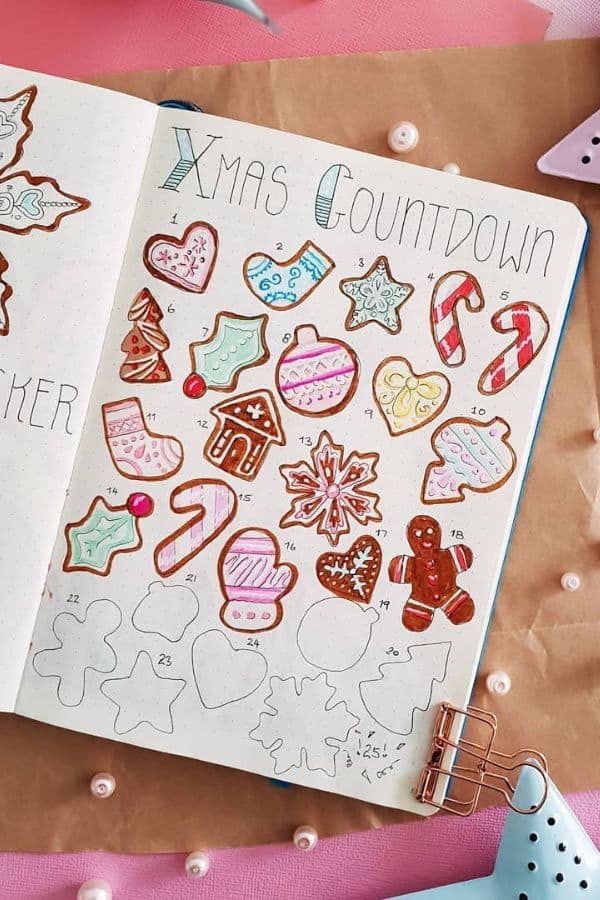 XMAS COUNTDOWN
1
2
3
4
5
6
7
8
9
10
11
12
13
14
15
16
17
18
19
20
21
22
23
24
25!
CKER